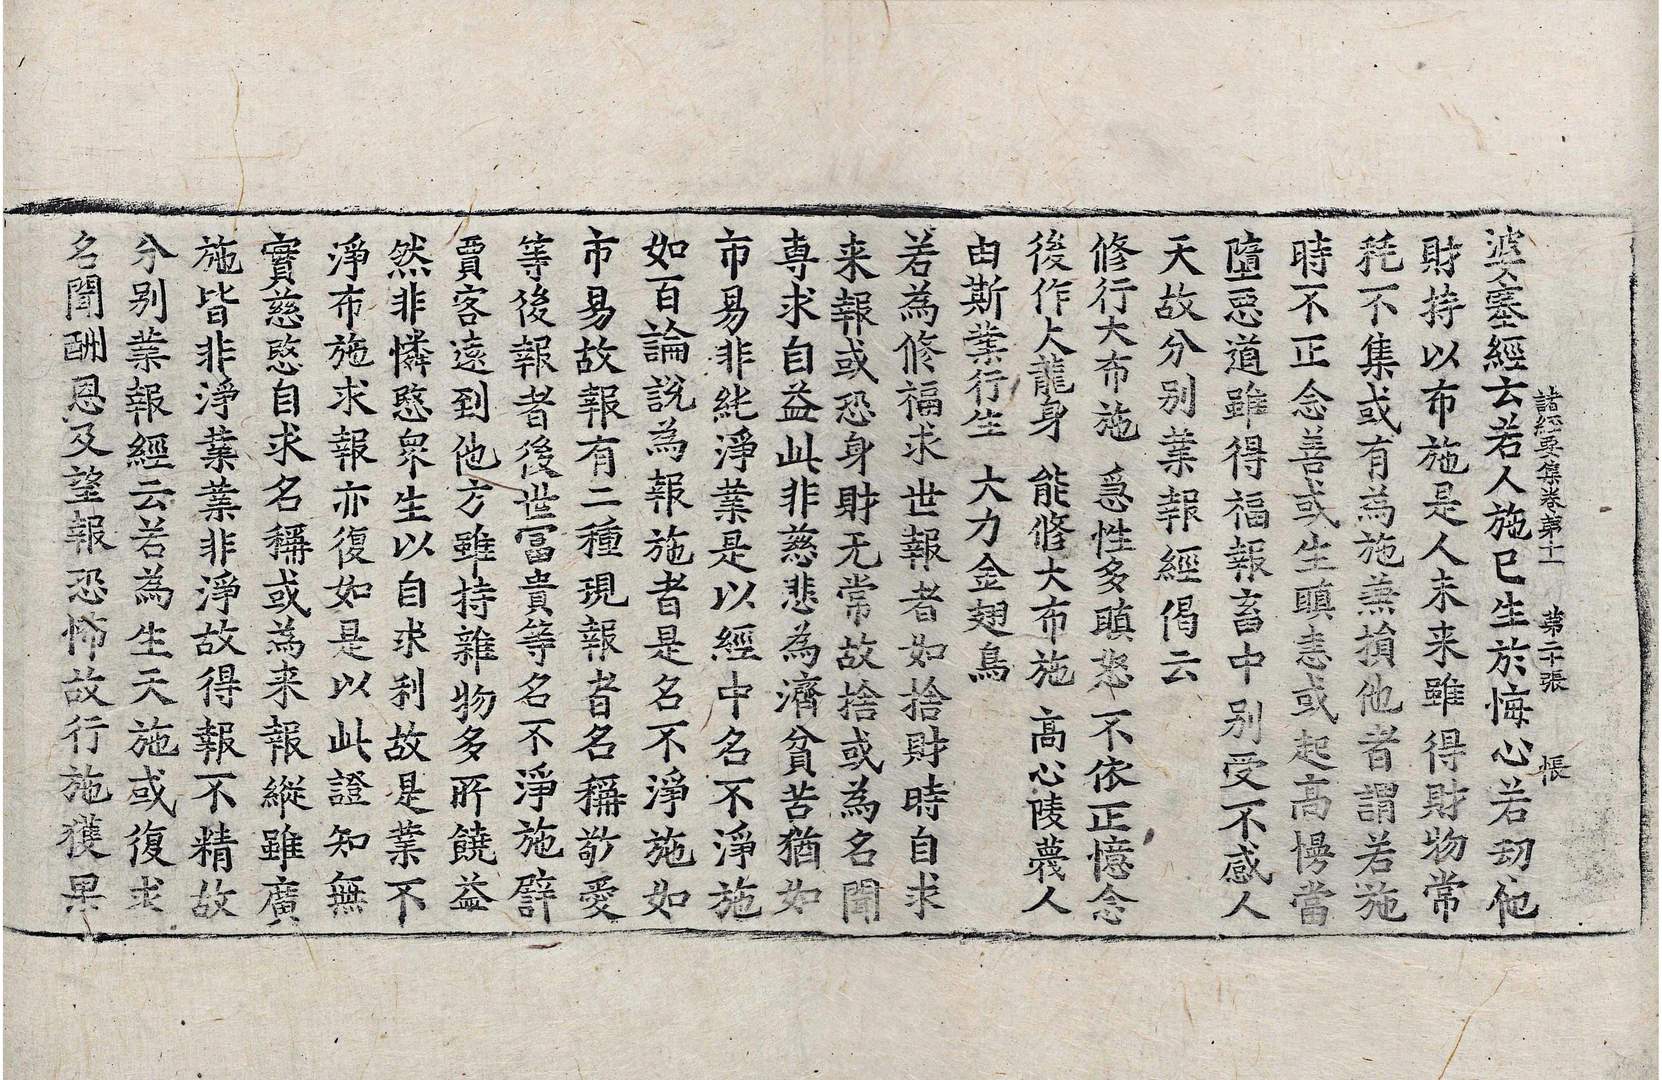 諸經要集卷第十一　第二十張　悵
婆塞經云若人施已生於悔心若刧他
財持以布施是人未来雖得財物常
耗不集或有為施兼損他者謂若施
時不正念善或生瞋恚或起高慢當
墮惡道雖得福報畜中別受不感人
天故分別業報經偈云
修行大布施　急性多瞋怒　不依正憶念
後作大龍身　能修大布施　高心陵蔑人
由斯業行生　大力金翅鳥
若為修福求世報者如捨財時自求
来報或恐身財无常故捨或為名聞
専求自益此非慈悲為濟貧苦猶如
市易非純淨業是以經中名不淨施
如百論說為報施者是名不淨施如
市易故報有二種現報者名稱敬愛
等後報者後世富貴等名不淨施譬
賈客遠到他方雖持雜物多所饒益
然非憐愍衆生以自求利故是業不
淨布施求報亦復如是以此證知無
實慈愍自求名稱或為来報縱雖廣
施皆非淨業業非淨故得報不精故
分別業報經云若為生天施或復求
名聞酬恩及望報恐怖故行施獲果